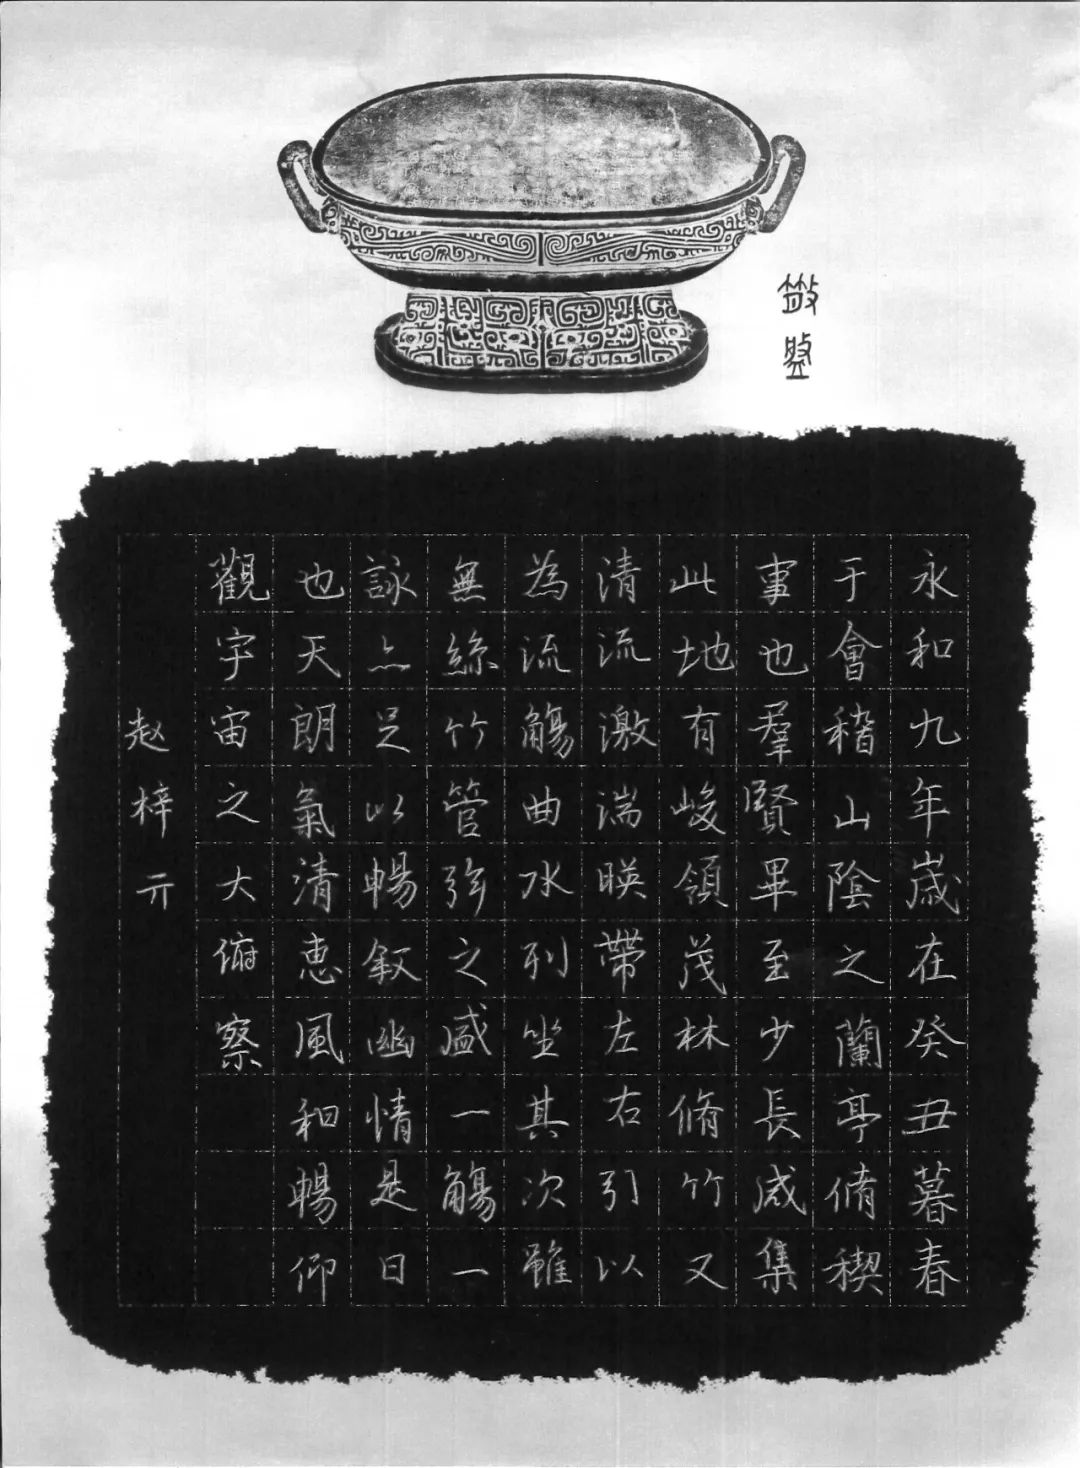 永和九年歲在癸丑暮春
于會稽山陰之蘭亭脩稧
事也羣賢畢至少長咸集
此地有峻領茂林脩竹又
清流激湍暎帶左右引以
為流觴曲水列坐其次雖
無絲竹管弦之盛一觴一
詠亦足以暢敘幽情是日
也天朗氣清惠風和暢仰
觀宇宙之大俯察
赵梓亓